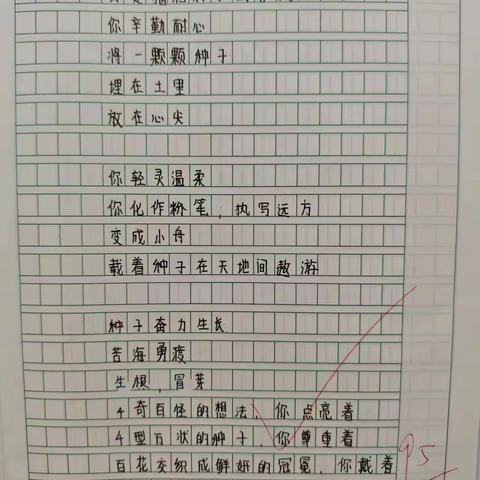 你辛勤耐心
将一颗颗种子
埋在土里
放在心尖
你轻灵温柔
你化作粉笔，执写远方
变成小舟
载着种子在天地间遨游
种子奋力生长
苦海勇渡
生根，冒芽
千奇百怪的想法，你点亮着
千型万状的种子，你尊重着
百花交织成鲜妍的冠冕，你戴着
95